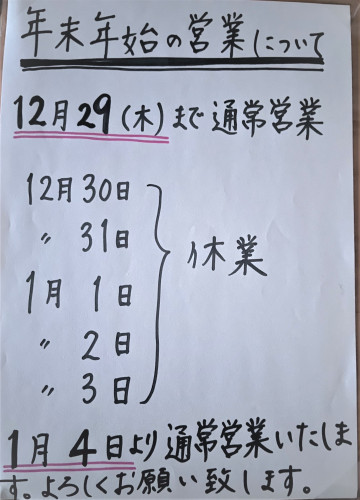 年末年始の営業について
12月29(木)まで通常営業
12月30日
〃 31日
1月 1日
〃 2日
〃 3日
休業
1月4日より通常営業いたしま
す。よろしくお願い致します。